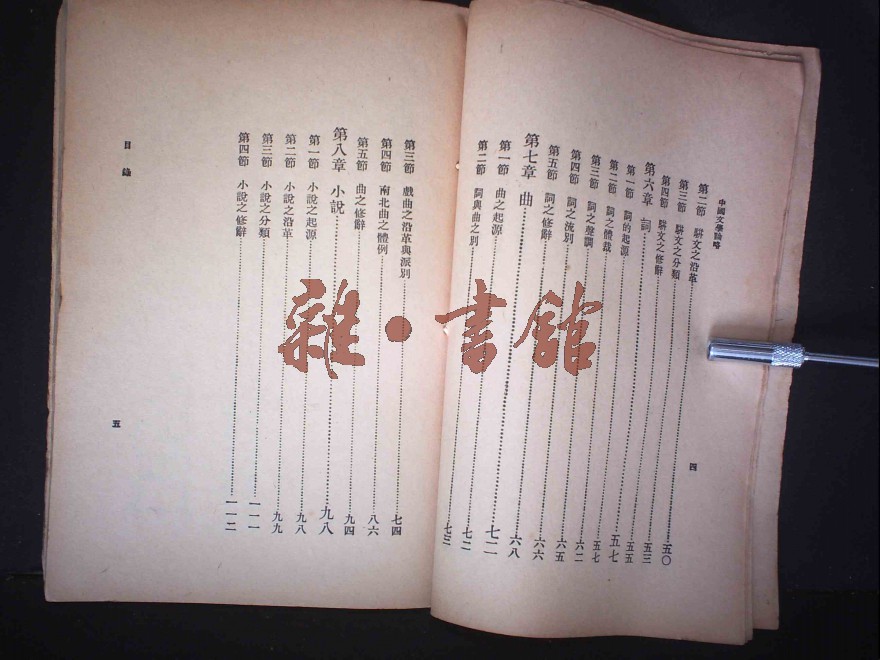 中國文學論略
第二節 駢文之沿革……五〇
第三節 駢文之分類……五三
第四節 駢文之修辭……五五
第六章 詞……五七
第一節 詞的起源……五七
第二節 詞之體裁……六二
第三節 詞之聲調……六五
第四節 詞之流別……六六
第五節 詞之修辭……六八
第七章 曲……七二
第一節 曲之起源……七二
第二節 詞與曲之別……七三
四
第三節 戲曲之沿革與派別……七四
第四節 南北曲之體例……八六
第五節 曲之修辭……九四
第八章 小說……九八
第一節 小說之起源……九八
第二節 小說之沿革……九九
第三節 小說之分類……一一一
第四節 小說之修辭……一一二
目錄
五
雜·書館